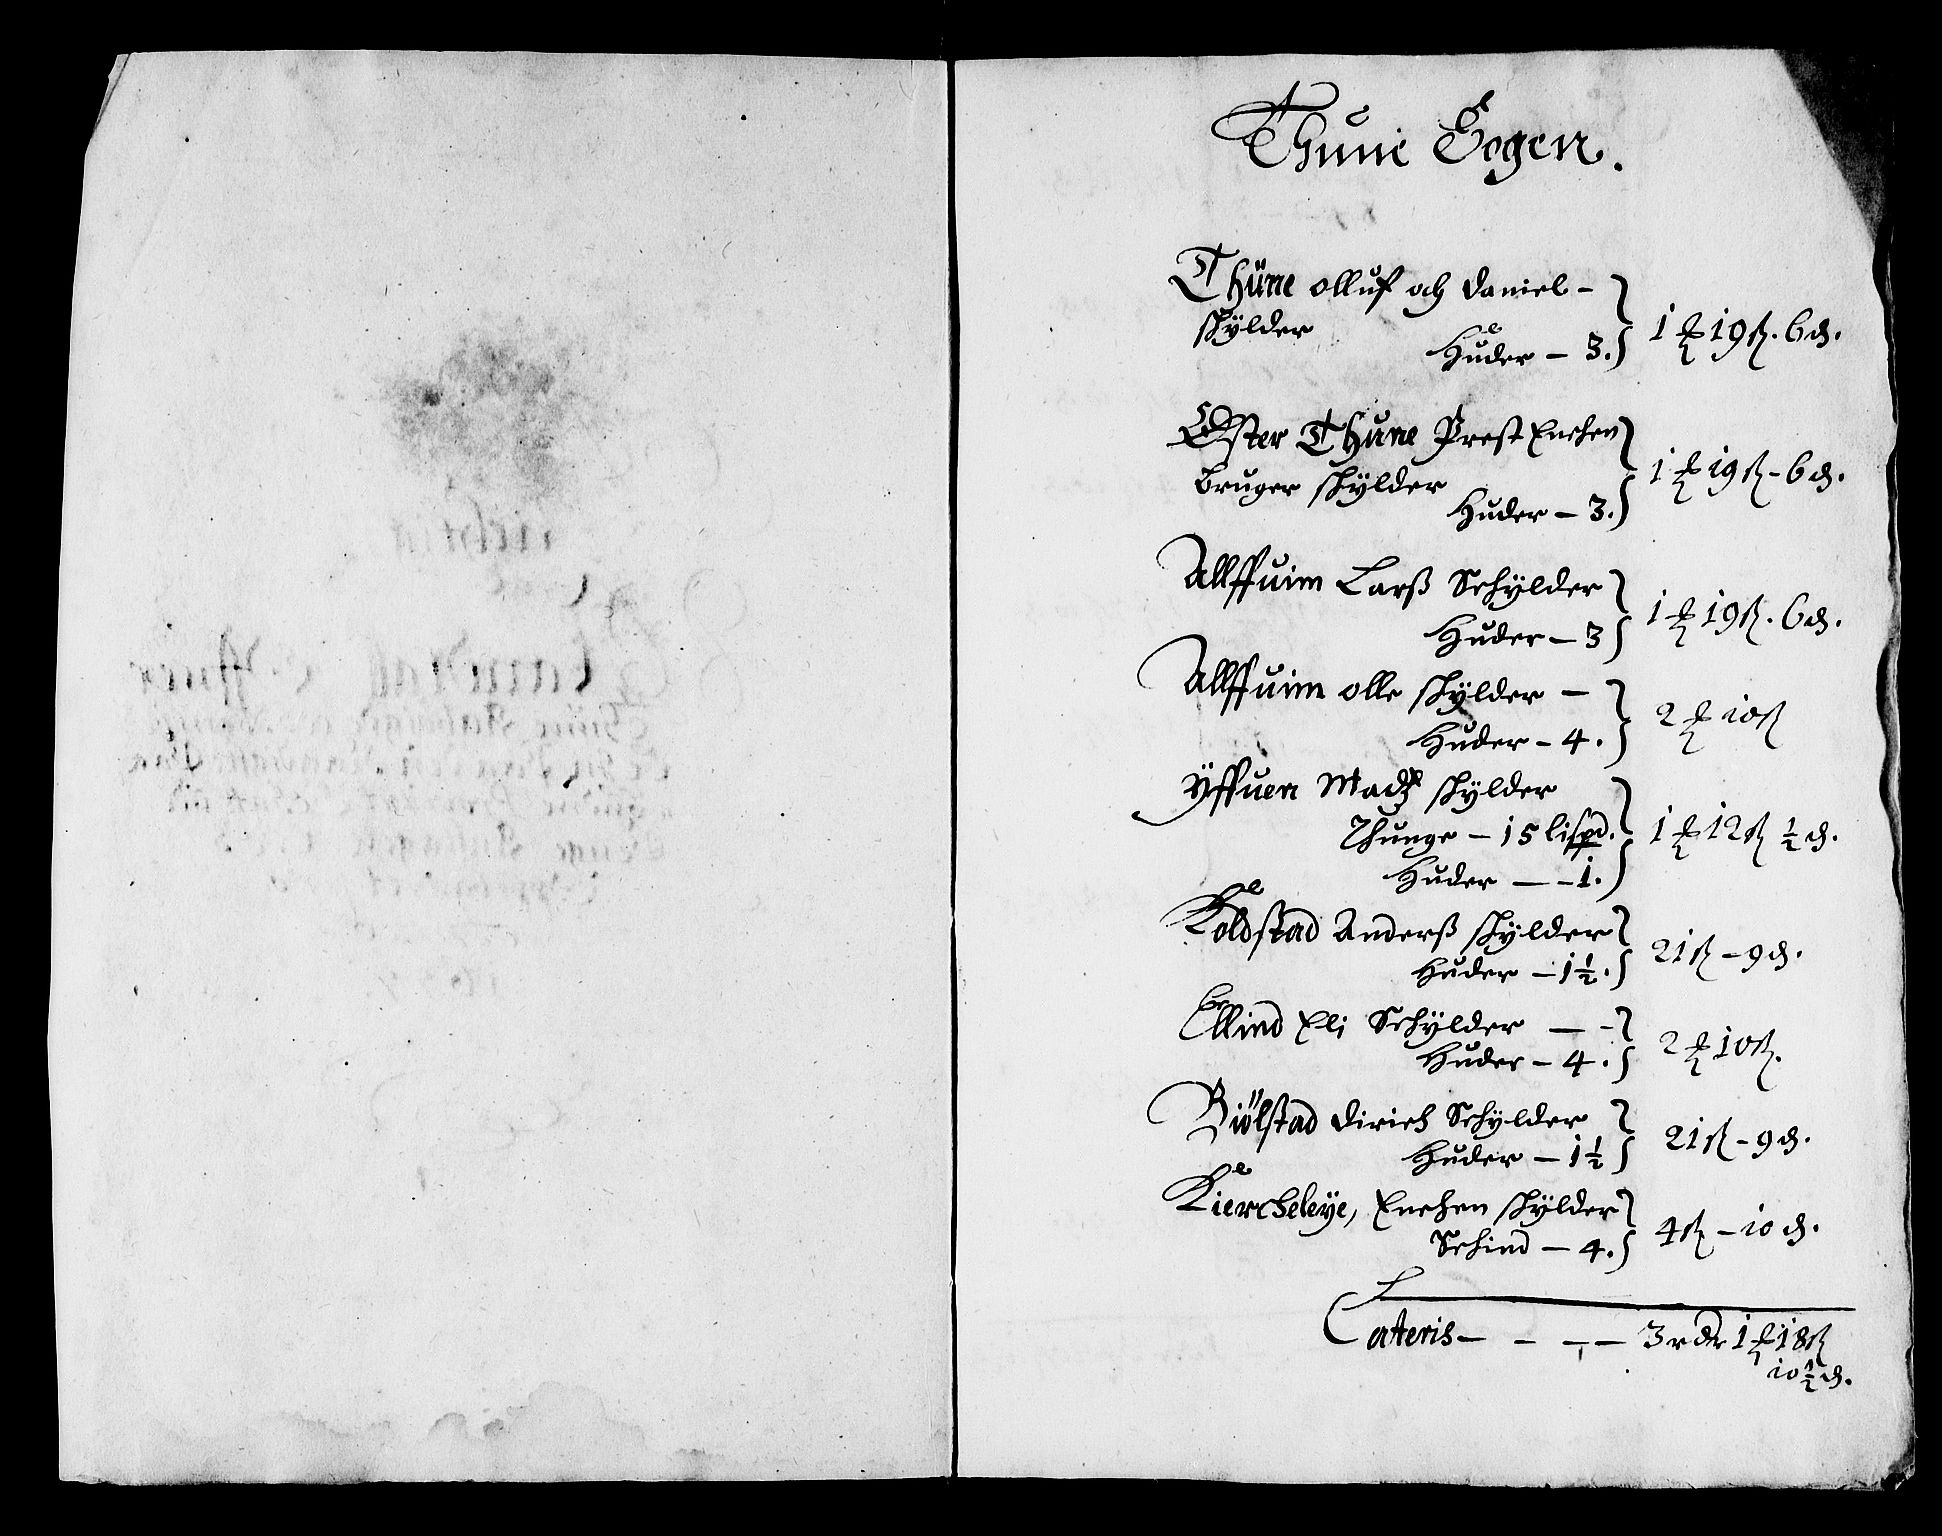 Thune Sogen.
Thüne olluf och Daniel -
skÿlder
Huder - 3. 1 ₰ 19 ß. 6 d.
Øster Thune Prest Enchen
bruger skÿlder
Huder - 3. 1 ₰ 19 ß - 6 d.
Allffuim Larß Schÿlder
Huder - 3 1 ₰ 19 ß. 6 d.
Allffuim olle skÿlder -
Huder - 4. 2 ₰ 10 ß
Ÿffuen Madtz skÿlder
Thunge - 15 lispd. 1 ₰ 12 ß ½ d.
Huder - - 1.
Koldstad Anderß skÿlder
Huder - 1½. 21 ß - 9 d.
Ellind Eli Schÿlder - -
Huder - 4. 2 ₰ 10 ß.
Biölstad Dirich Schÿlder
Huder - 1½ 21 ß - 9 d.
Kiercheleÿe, Enchen skÿlder
Schind - 4. 4 ß - 10 d.
Lateris - - - - 3 rdr 1 ₰ 18 ß
10½ d.